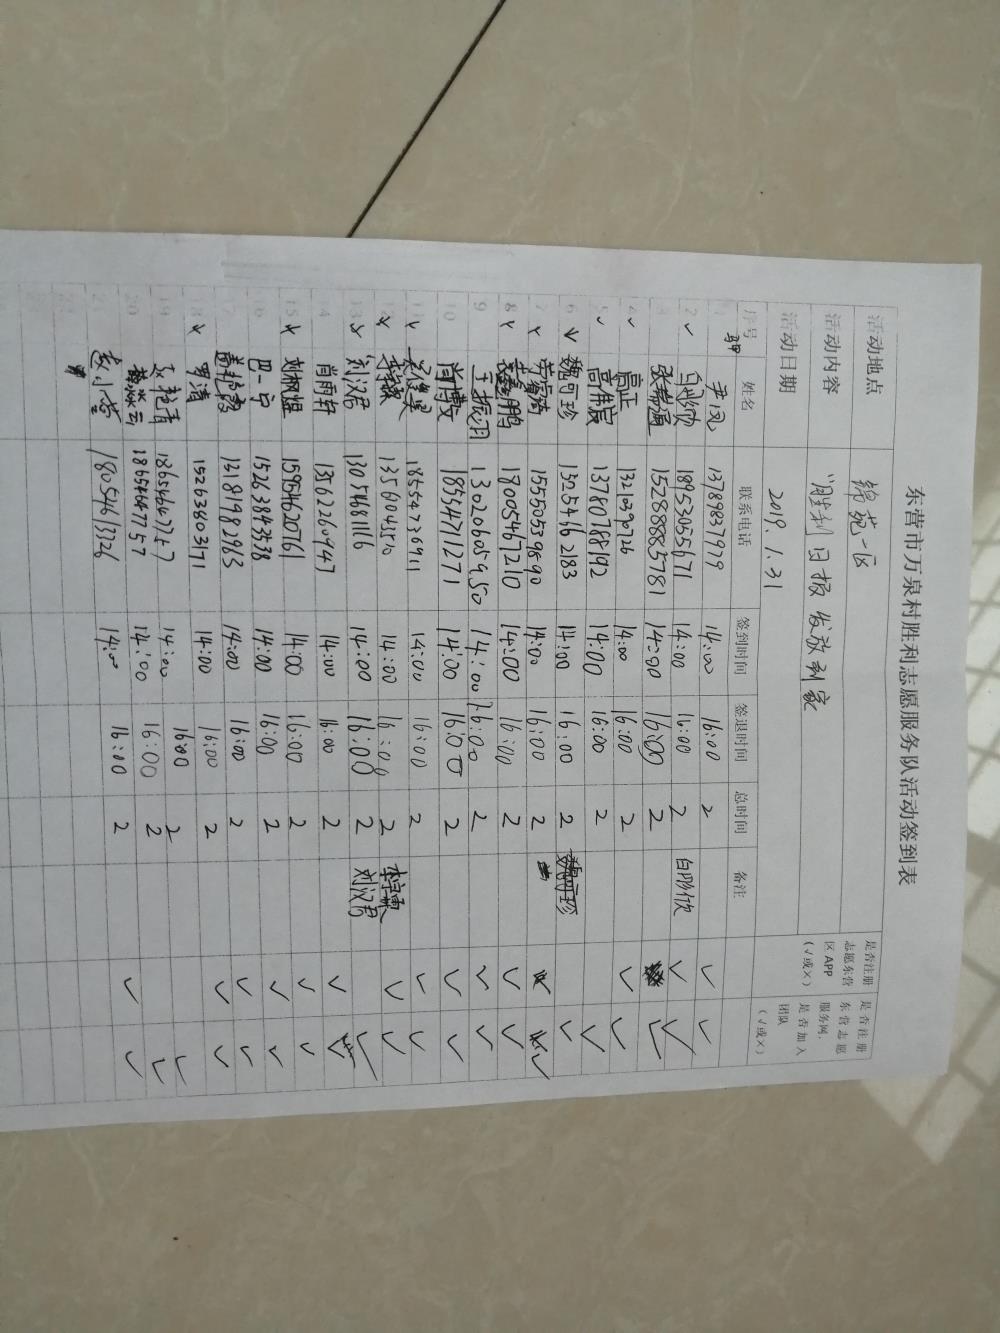 东营市万泉村胜利志愿服务队活动签到表
活动地点 锦苑一区
活动内容 "胜利日报发放到家
活动日期 2019.1.31
序号 姓名 联系电话 签到时间 签退时间 总时间 备注 是否注册志愿东营区APP(√或×) 是否注册东营志愿服务网,是否加入团队(√或×)
1 尹凤 13789837979 14:00 16:00 2 ✓ ✓
2 ✓ 18953055671 14:00 16:00 2 ✓ ✓
3 15288885781 14:00 16:00 2 ✓
4 ✓ 高正 1321390726 14:00 16:00 2 ✓ ✓
5 ✓ 高伟宸 13780788192 14:00 16:00 2 ✓
6 ✓ 魏可珍 15254662183 14:00 16:00 2 魏可珍 ✓
7 ✓ 15550539890 14:00 16:00 2 ✓
8 ✓ 18005467210 14:00 16:00 2 ✓ ✓
9 王振羽 13020605950 14:00 16:00 2 ✓ ✓
10 肖博文 18554711271 14:00 16:00 2 ✓ ✓
11 ✓ 18554736911 14:00 16:00 2 ✓ ✓
12 ✓ 13561043510 14:00 16:00 2 ✓ ✓
13 ✓ 刘汉君 13054681116 14:00 16:00 2 刘汉君 ✓
14 肖雨轩 13562260947 14:00 16:00 2 ✓ ✓
15 ✓ 刘枫煜 15954620761 14:00 16:00 2 ✓ ✓
16 巴一宁 15263843538 14:00 16:00 2 ✓ ✓
17 13181982963 14:00 16:00 2 ✓ ✓
18 ✓ 罗清 15263803171 14:00 16:00 2 ✓ ✓
19 18654647757 14:00 16:00 2 ✓
20 18654647757 14:00 16:00 2 ✓
21 赵小莹 18054613326 14:00 16:00 2 ✓ ✓